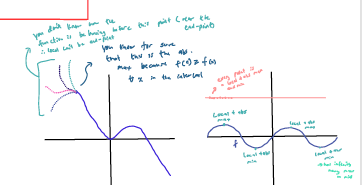 you don't know how the
function is behaving before this point (near the
end-points)
∴ can't be end-point
you know for sure
that this is the abs.
max because f(a) ≥ f(x)
∀ x in the interval
every point is
a local + abs max
and min
Local + abs
max
local + abs
max
f
Local + abs
min
Local + abs
min